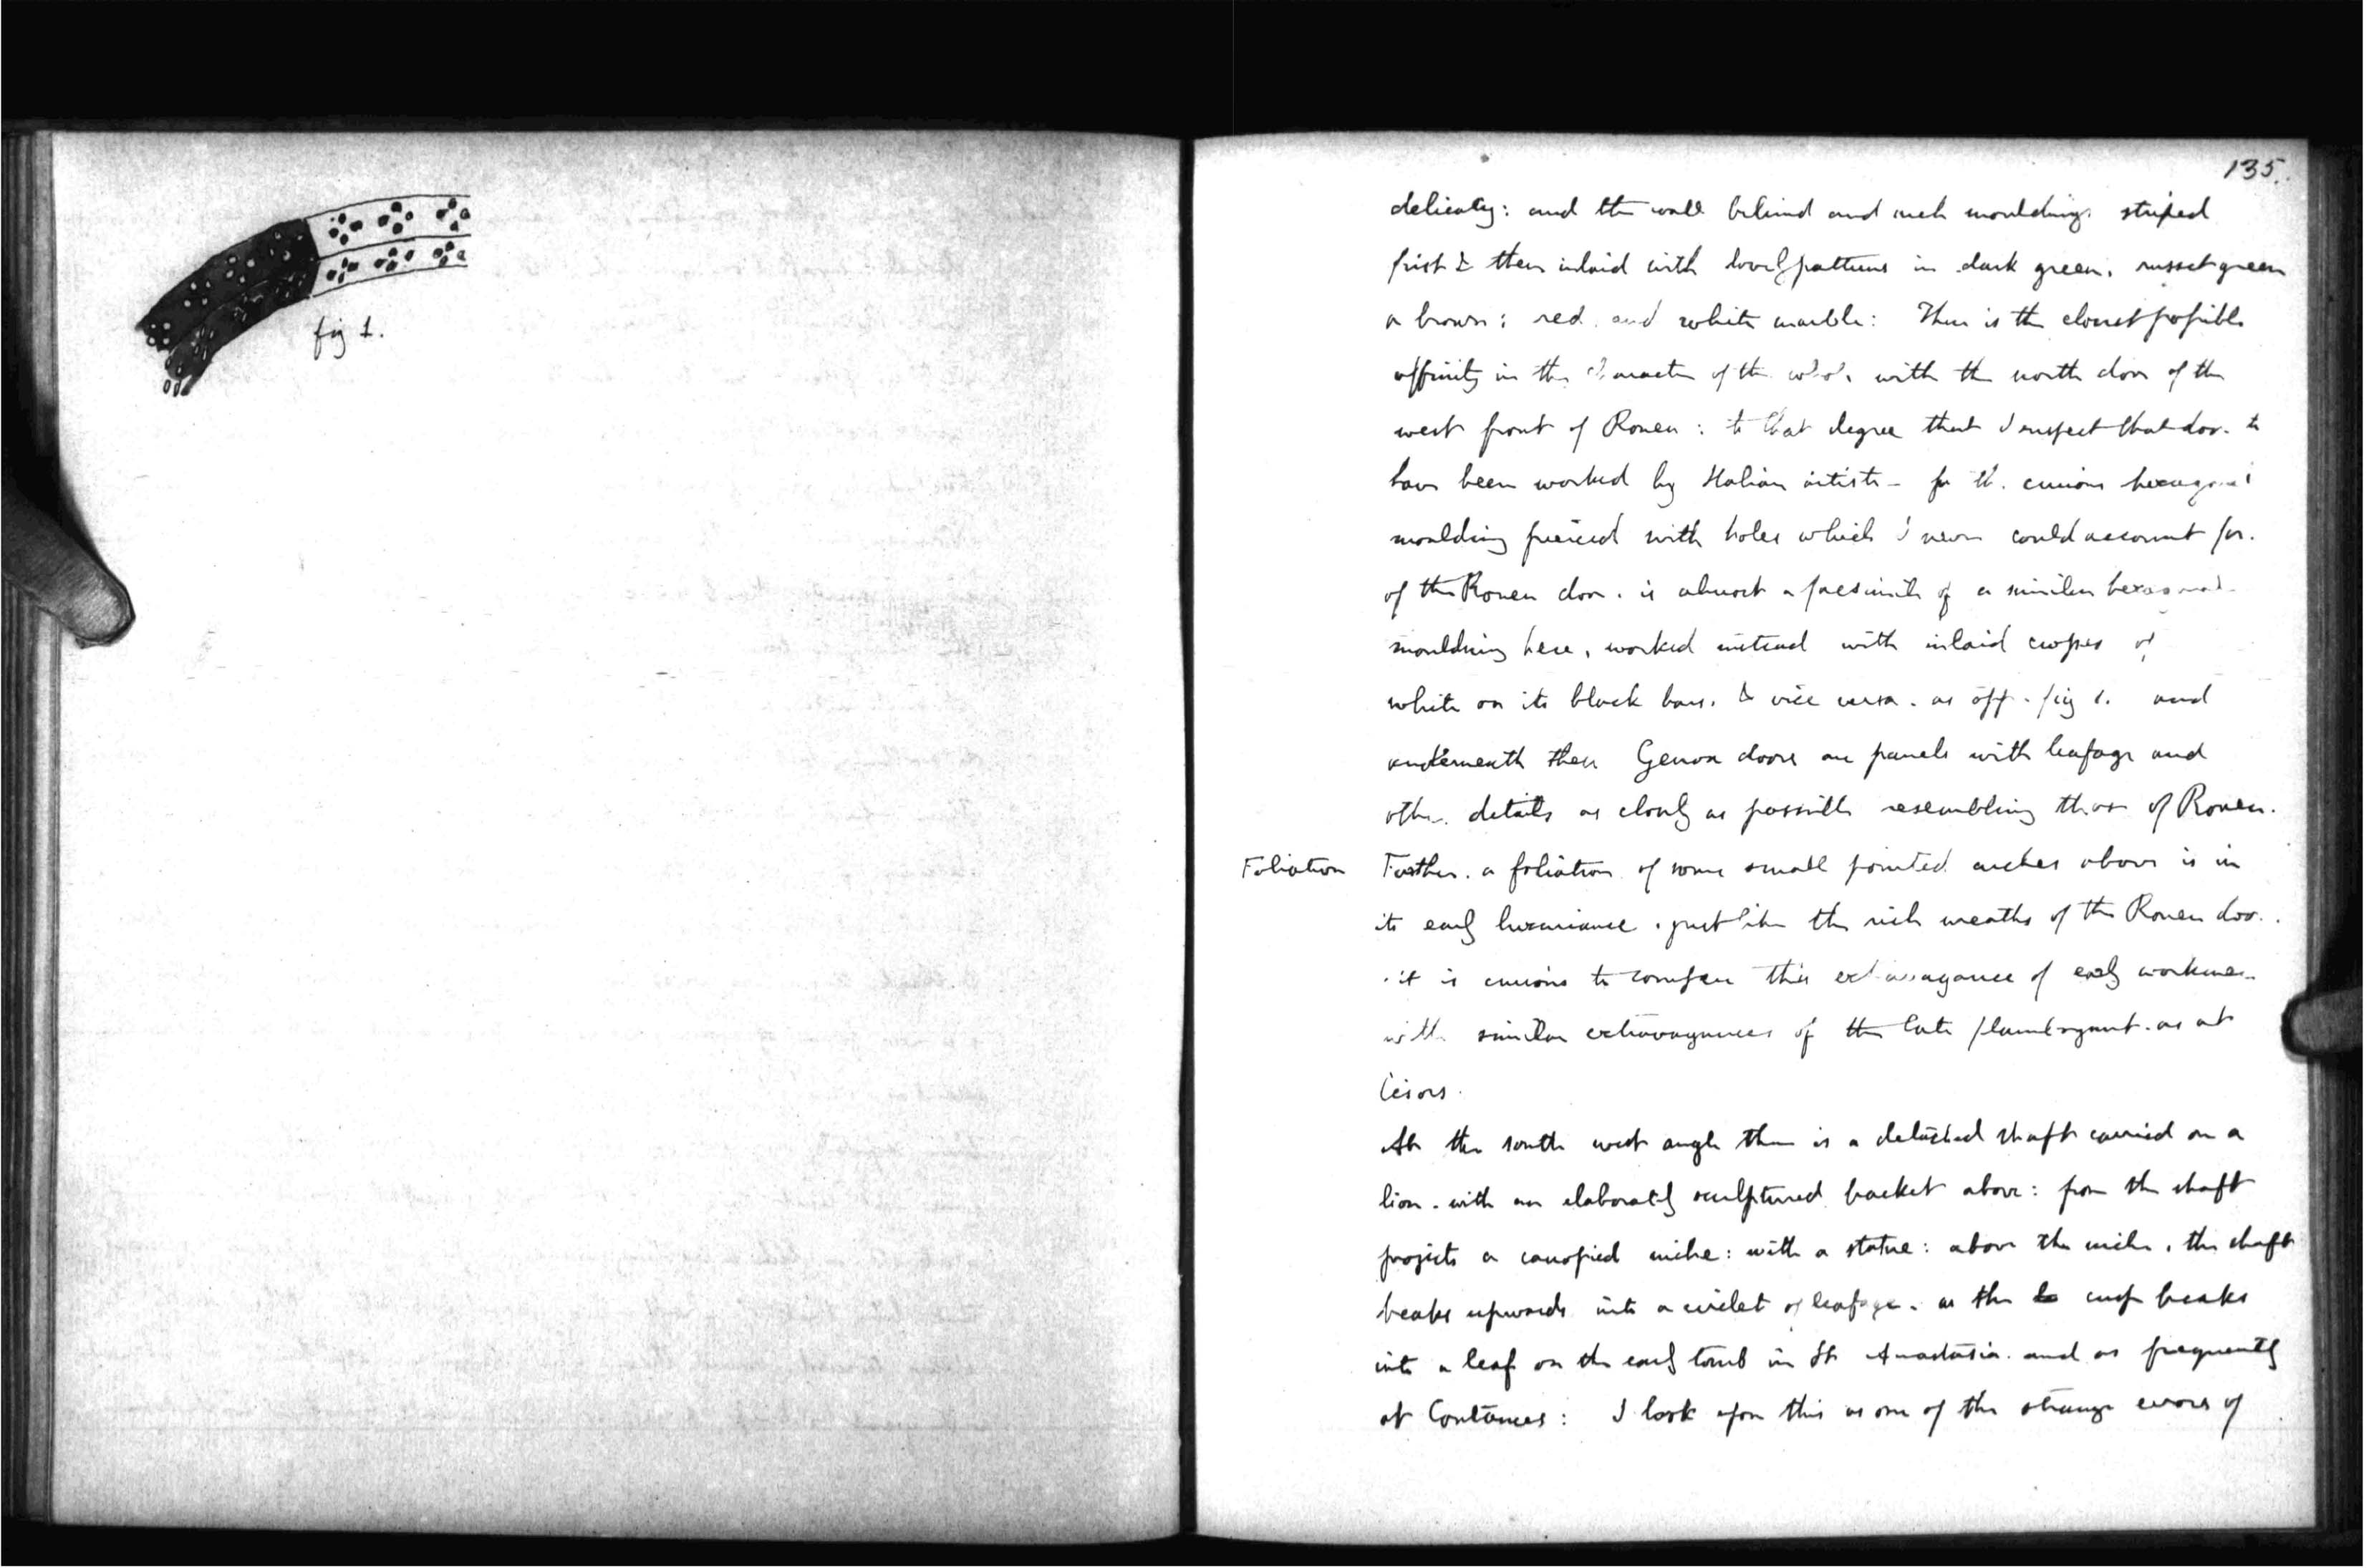 fig 1.
135.
delicacy: and the wall behind and arch mouldings striped
first & then inlaid with lovely patterns in dark green, russet green
or brown: red and white marble: There is the closest possible
affinity in the character of the whole with the north door of the
west front of Rouen: to that degree that I suspect that door to
have been worked by Italian artists - for the curious hexagonal
moulding pierced with holes which I never could account for.
of the Rouen door. is almost a facsimile of a similar hexagonal
moulding here, worked instead with inlaid crosses of
white on its black bars. & vice versa. as opp. fig 1. and
underneath these Genoa doors are panels with leafage and
other details as closely as possible resembling those of Rouen.
Foliation Farther. a foliation of some small pointed arches above is in
its early luxuriance. just like the rich wreaths of the Rouen door.
it is curious to compare this extravagance of early workmen
with similar extravagances of the late flamboyant. as at
At the south west angle there is a detached shaft carried on a
lion. with an elaborately sculptured bracket above: from the shaft
projects a canopied niche: with a statue: above the niche, the shaft
breaks upwards into a circlet of leafage. as the cusp breaks
into a leaf on the early tomb in St Anastasia. and as frequently
at Coutances: I look upon this as one of the strange errors of